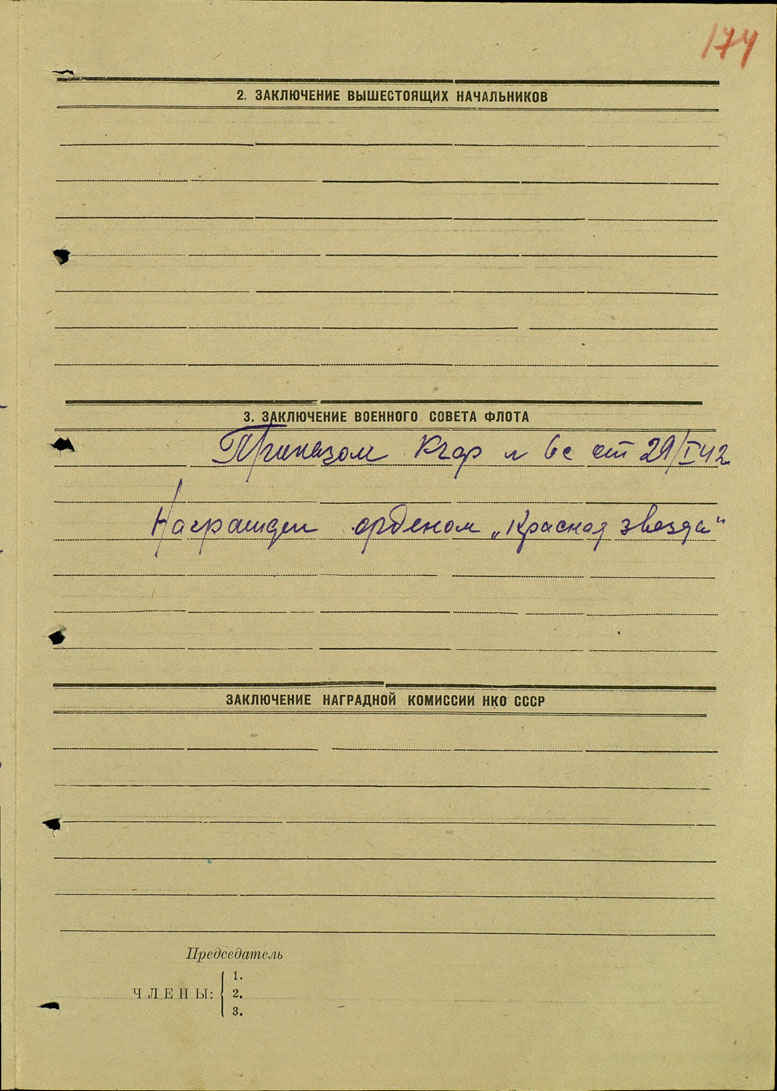 174
2. ЗАКЛЮЧЕНИЕ ВЫШЕСТОЯЩИХ НАЧАЛЬНИКОВ
3. ЗАКЛЮЧЕНИЕ ВОЕННОГО СОВЕТА ФЛОТА
Приказом от 29/I 42
Награжден орденом „Красная звезда“
ЗАКЛЮЧЕНИЕ НАГРАДНОЙ КОМИССИИ НКО СССР
Председатель
ЧЛЕНЫ:
1.
2.
3.